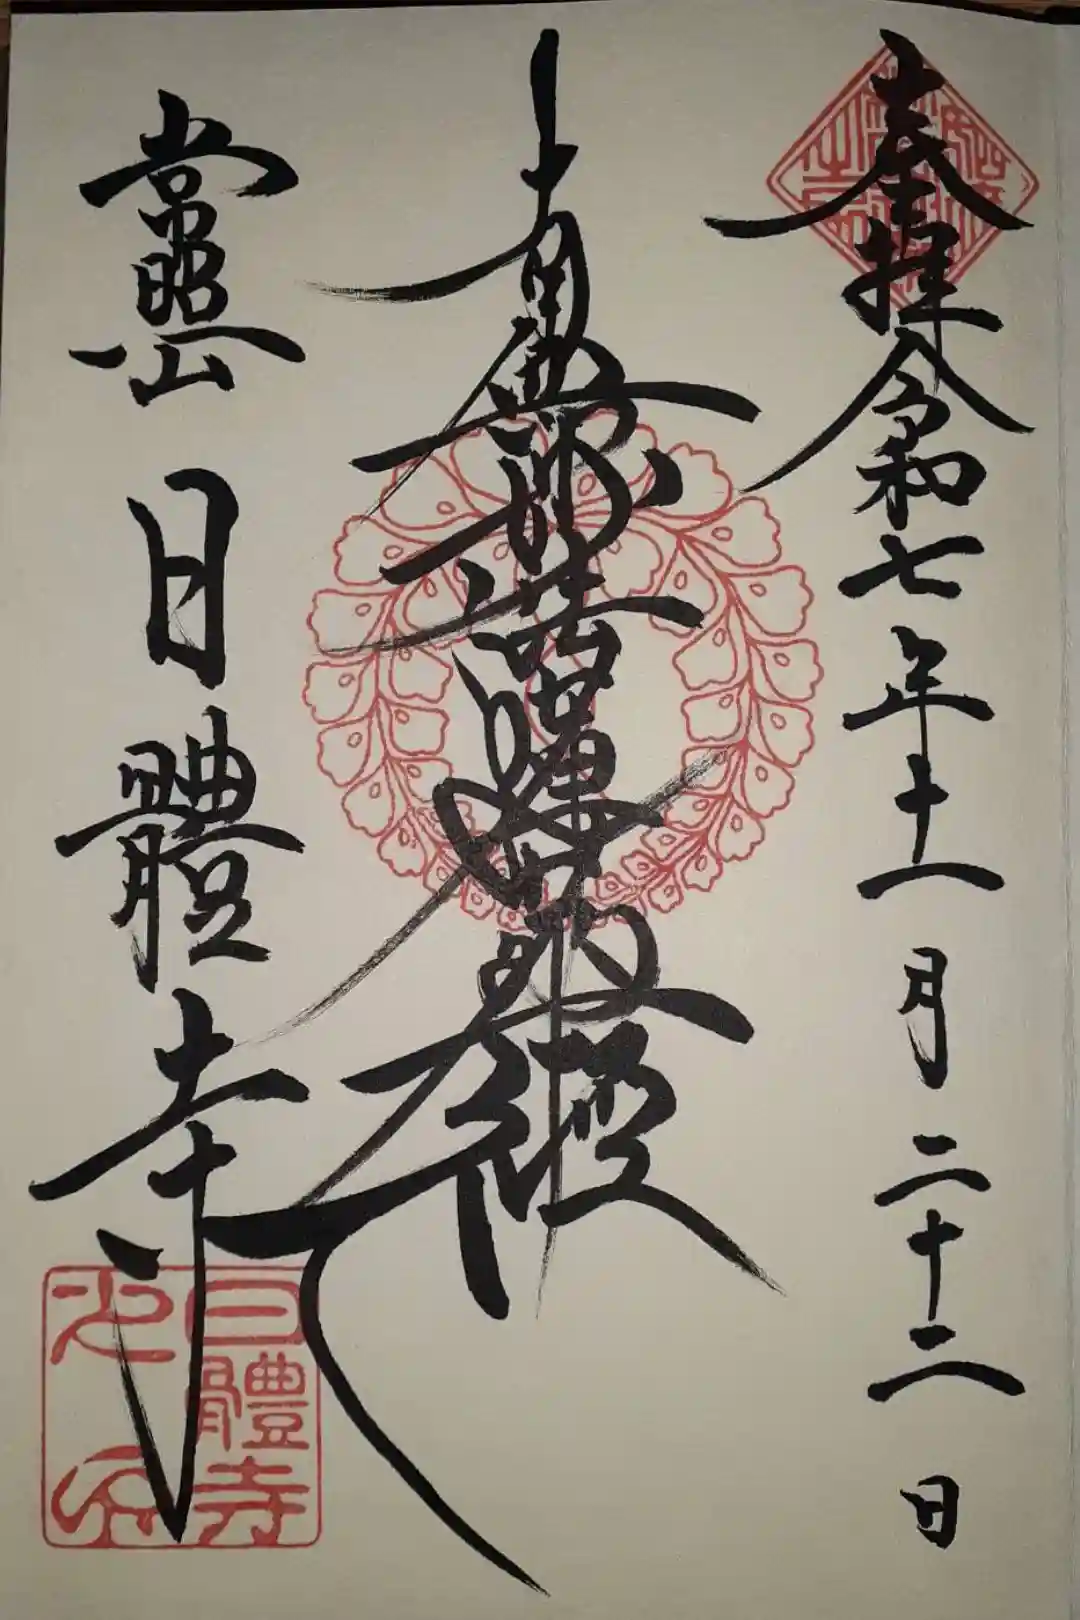 奉拝 令和七年十一月二十二日
南無妙法蓮華經
常照山 日體寺
日體寺
之印